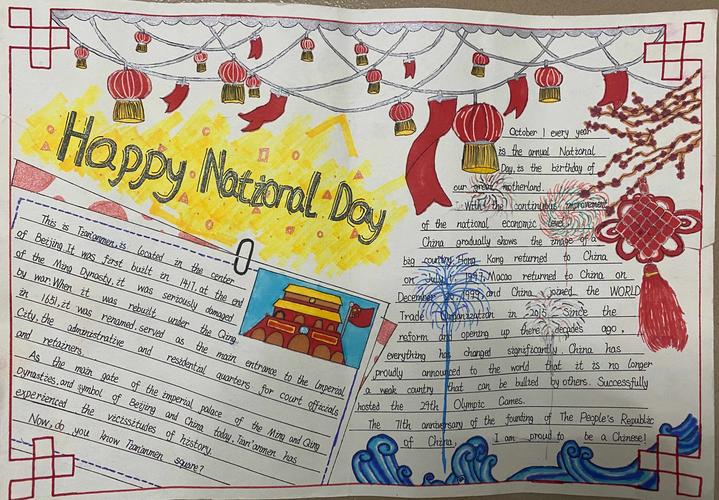 Happy National Day
This is Tian'anmen, is located in the center
of Beijing. It was first built in 1417, at the end
of the Ming Dynasty, it was seriously damaged
by war. When it was rebuilt under the Qing
in 1651, it was renamed. served as the main entrance to the Imperial
City, the administrative and residential quarters for court officials
and retainers.
As the main gate of the imperial palace of the Ming and Qing
Dynasties, and symbol of Beijing and China today, Tian'anmen has
experienced the vicissitudes of history.
Now, do you know Tian'anmen square?
October 1 every year
is the annual National
Day, is the birthday of
our great motherland.
With the continuous improvement
of the national economic level,
China gradually shows the image of a
big country. Hong Kong returned to China
on July 1, 1997, Macao returned to China on
December 1999, and China joined the WORLD
Trade Organization in Since the
reform and opening up three decades ago,
everything has changed significantly China has
proudly announced to the world that it is no longer
a weak country that can be bullied by others. Successfully
hosted the 29th Olympic Games.
The 71th anniversary of the founding of The People's Republic
of China, I am proud to be a Chinese!